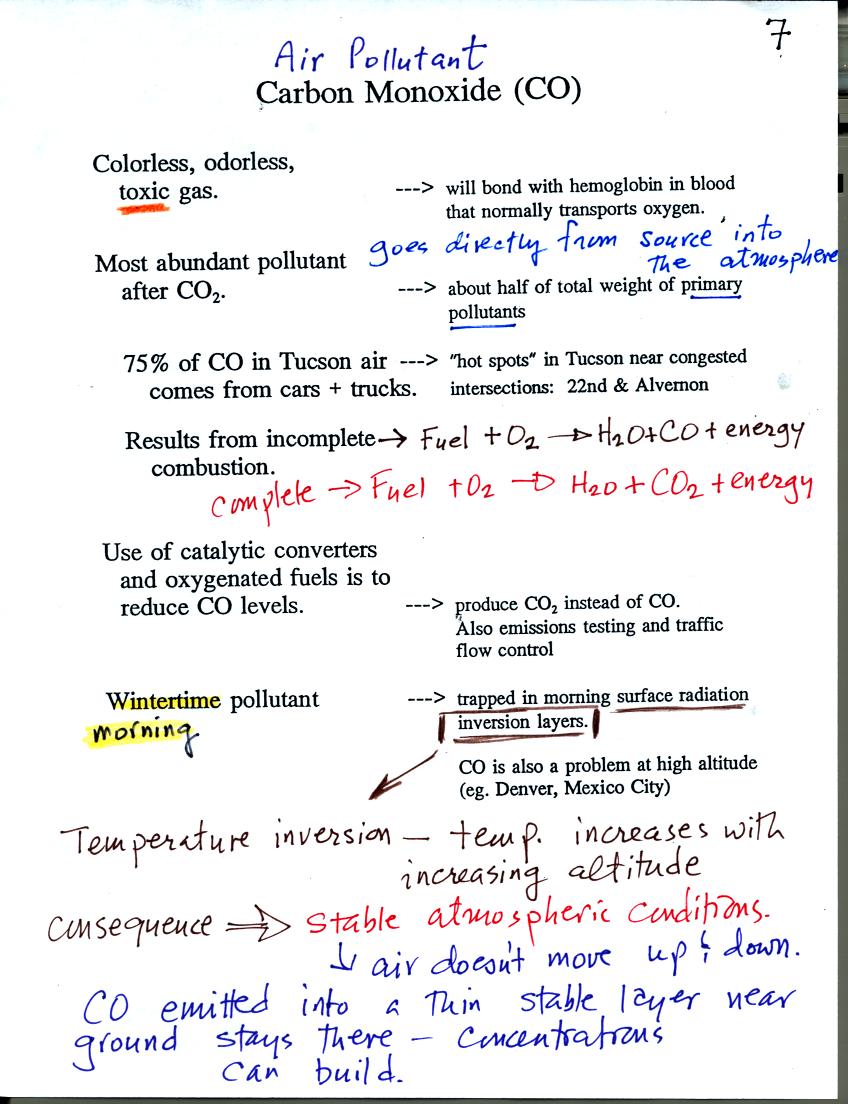 7
Air Pollutant
Carbon Monoxide (CO)
Colorless, odorless,
toxic gas.
---> will bond with hemoglobin in blood
that normally transports oxygen.
goes directly from source into
the atmosphere
Most abundant pollutant
after CO₂.
---> about half of total weight of primary
pollutants
75% of CO in Tucson air ---> "hot spots" in Tucson near congested
comes from cars + trucks. intersections: 22nd & Alvernon
Results from incomplete → Fuel + O₂ → H₂O + CO + energy
combustion.
complete → Fuel + O₂ → H₂O + CO₂ + energy
Use of catalytic converters
and oxygenated fuels is to
reduce CO levels. ---> produce CO₂ instead of CO.
Also emissions testing and traffic
flow control
Wintertime pollutant ---> trapped in morning surface radiation
morning inversion layers.
CO is also a problem at high altitude
(eg. Denver, Mexico City)
Temperature inversion — temp. increases with
increasing altitude
consequence ⇒ stable atmospheric conditions.
↓ air doesn't move up & down.
CO emitted into a thin stable layer near
ground stays there — concentrations
can build.